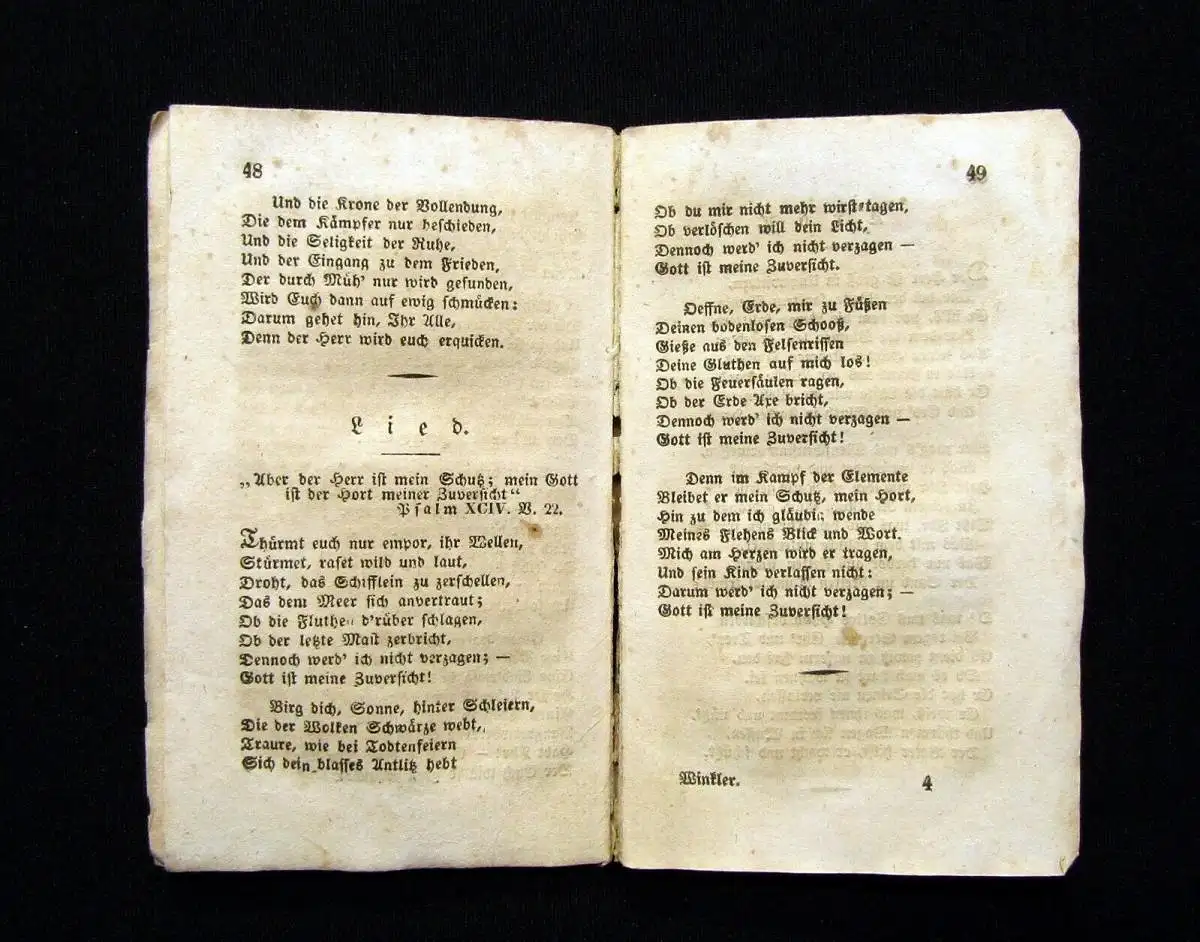 48
Und die Krone der Vollendung,
Die dem Kämpfer nur beschieden,
Und die Seligkeit der Ruhe,
Und der Eingang zu dem Frieden,
Der durch Müh' nur wird gefunden,
Wird Euch dann auf ewig schmücken:
Darum gehet hin, Ihr Alle,
Denn der Herr wird euch erquicken.
Lied.
„Aber der Herr ist mein Schutz; mein Gott
ist der Hort meiner Zuversicht“
Psalm XCIV. V. 22.
Thürmt euch nur empor, ihr Wellen,
Stürmet, raset wild und laut,
Droht, das Schifflein zu zerschellen,
Das dem Meer sich anvertraut;
Ob die Fluthen d'rüber schlagen,
Ob der letzte Mast zerbricht,
Dennoch werd' ich nicht verzagen; —
Gott ist meine Zuversicht!
Birg dich, Sonne, hinter Schleiern,
Die der Wolken Schwärze webt,
Traure, wie bei Todtenfeiern
Sich dein blasses Antlitz hebt
49
Ob du mir nicht mehr wirst tagen,
Ob verlöschen will dein Licht,
Dennoch werd' ich nicht verzagen —
Gott ist meine Zuversicht.
Oeffne, Erde, mir zu Füßen
Deinen bodenlosen Schooß,
Gieße aus den Felsenrissen
Deine Gluthen auf mich los!
Ob die Feuersäulen ragen,
Ob der Erde Axe bricht,
Dennoch werd' ich nicht verzagen —
Gott ist meine Zuversicht!
Denn im Kampf der Elemente
Bleibet er mein Schutz, mein Hort,
Hin zu dem ich gläubig wende
Meines Flehens Blick und Wort.
Mich am Herzen wird er tragen,
Und sein Kind verlassen nicht:
Darum werd' ich nicht verzagen; —
Gott ist meine Zuversicht!
Winkler. 4